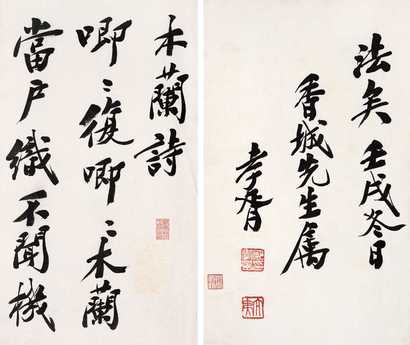 木蘭詩
唧〻復唧〻木蘭
當戶織不聞機
法矣壬戌冬日
香城先生属
孝胥